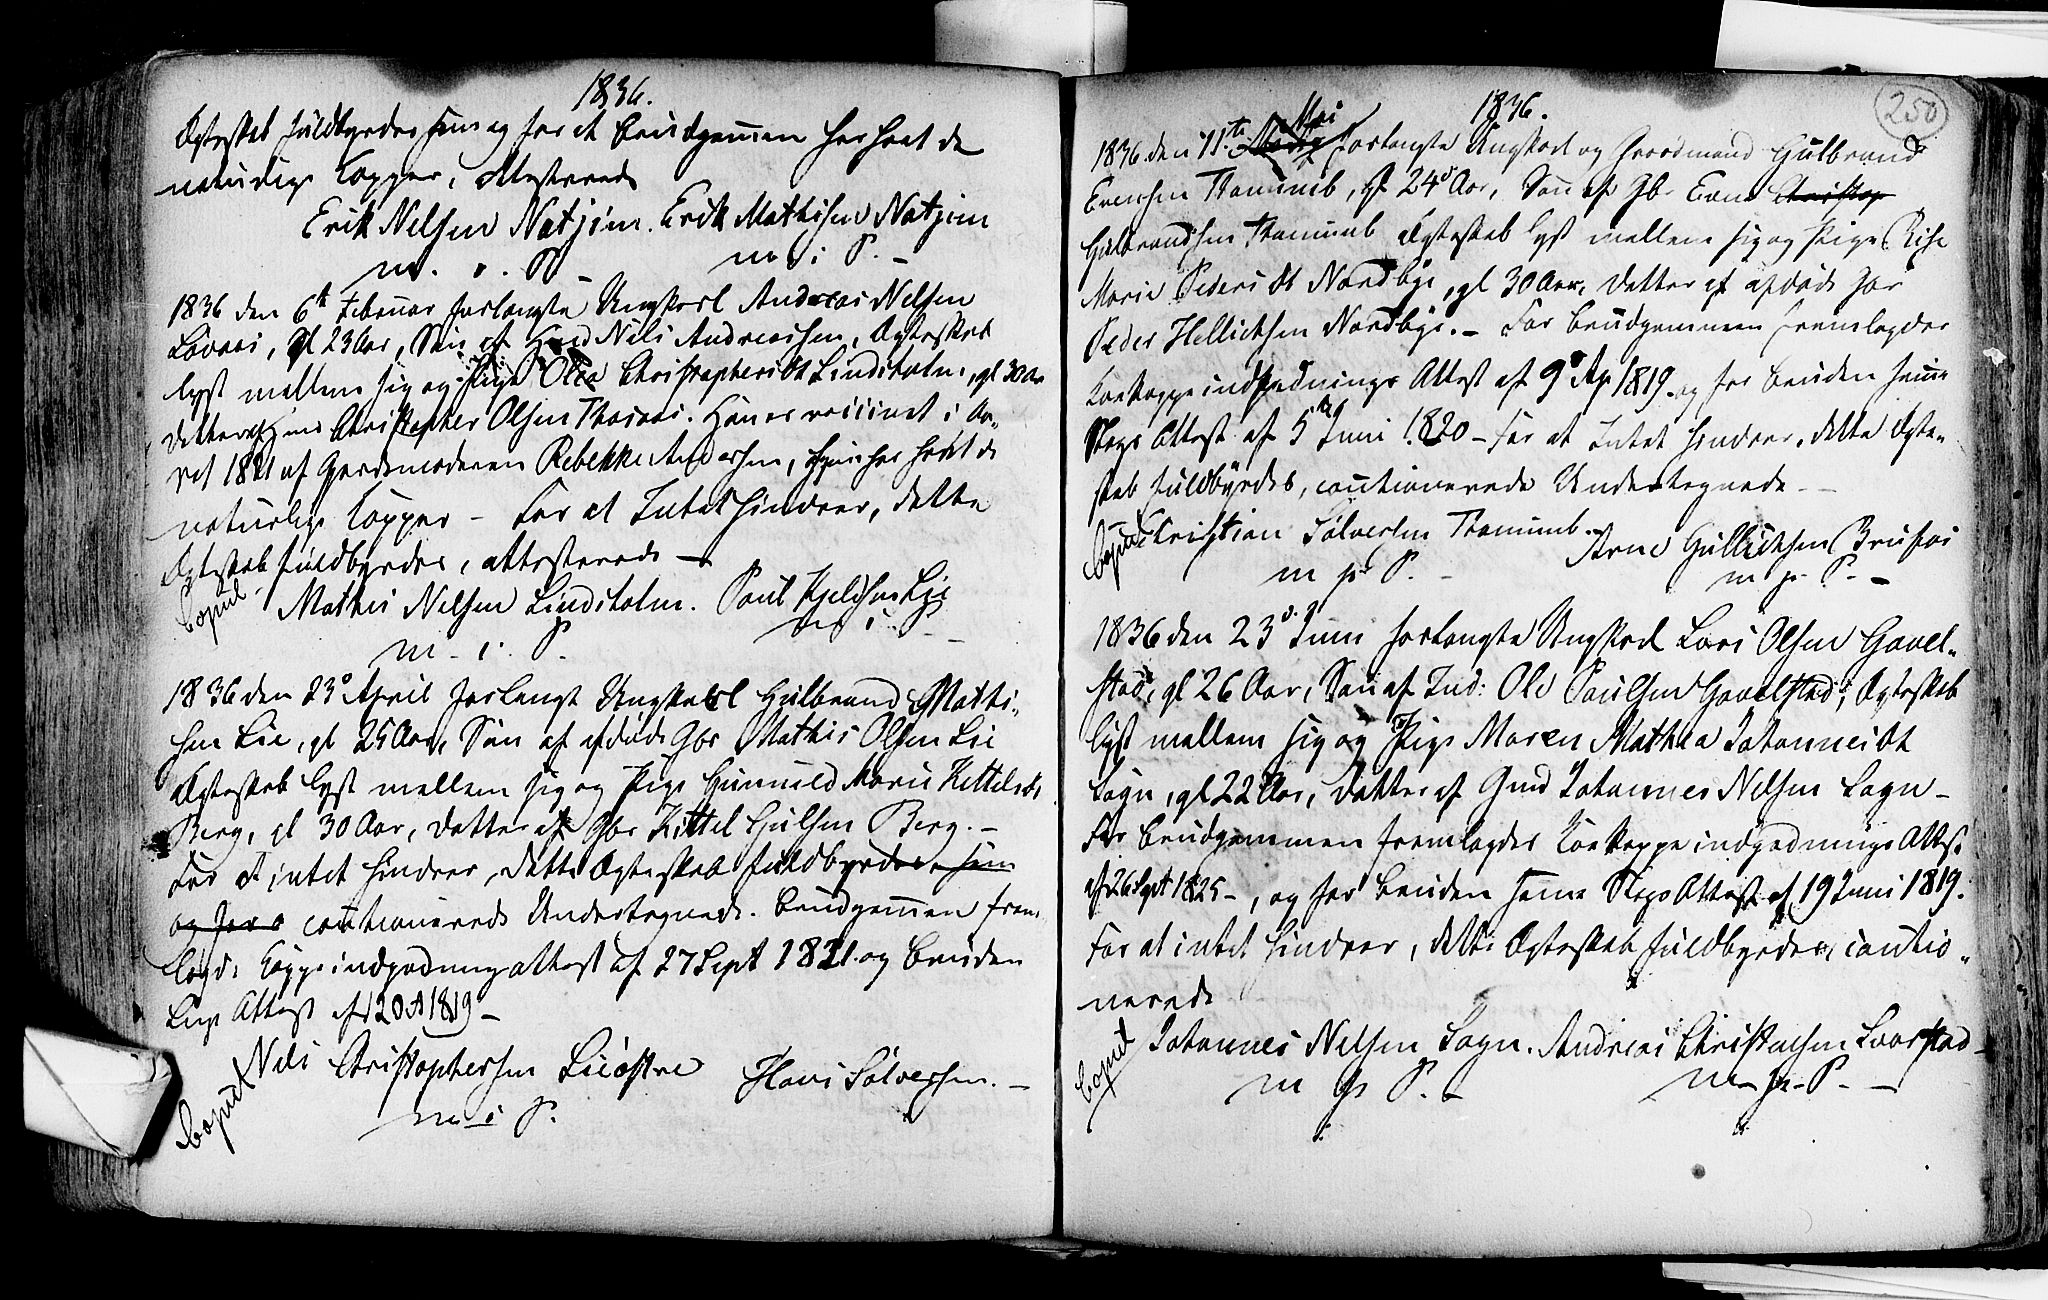 1836.
Ægteskab fuldbyrdes, hun og for at Brudgommen har havt de
naturlige Kopper, attesterede
Erik Nelsen Natjim. Erik Mathisen Natjim
m. i. P. m. i P.
1836 den 6te Februar forlangte Ungkarl Andreas Nelsen
Lovaas, gl 23 Aar, Søn af Hmd Nils Andreassen, Ægteskab
lyst mellem sig og Pige Olea Christophersdt Lindsholm, gl 30 Aar
Datter af Christopher Olsen Thoraas. Han er vaccineret i Aa-
ret 1821 af Gjordemoderen Rebekke Andersen, hun har havt de
naturlige Kopper – For at Intet hindrer, dette
Ægteskab fuldbyrdes, attesterede –
Copul.
Mathis Nelsen Lindsholm. Poul Kjeldsen Lie
m. i. P. m i P.
1836 den 23de April forlangt Ungkarl Gulbrand Mathi-
sen Lie, gl 25 Aar, Søn af afdøde Gbr Mathis Olsen Lie
Ægteskab lyst mellem sig og Pige Gunnild Marie Kittelsdt
Berg, gl 30 Aar, Datter af Gbr Kittel Gulsen Berg. –
For at intet hindrer, dette Ægteskab fuldbyrdes, hun
og for cautionerede Undertegnede. Brudgommen frem
lagde Koppeindpodningsattest af 27 Sept 1821 og Bruden
Lige Attest af 20 1819 –
Copul
Nils Christophersen Lieøstre Hans Sølversen. –
m i P.
250
1836.
Mai
1836 den 11te forlangte Ungkarl og Gaardmand Gulbrand
Evensen Tranum, gl 24 Aar, Søn af Gbr Even Christop
Gulbrandsen Tranum Ægteskab lyst mellem sig og Pige Lise
Marie Pedersdt Nordbye, gl 30 Aar, Datter af afdøde Gbr
Peder Hellichsen Nordbye. – For Brudgommen fremlagdes
Koekoppeindpodnings Attest af 9de Ap 1819 og for Bruden samme
Slags Attest af 5te Juni 1820 – For at Intet hindrer, dette Ægte-
skab fuldbyrdes, cautionerede Undertegnede –
Copul
Cristian Sølversen Tranum. Arne Gullichsen Brufos
m p. P. – m p. P. –
1836 den 23de Juni forlangte Ungkarl Lars Olsen Gavel-
stad, gl 26 Aar, Søn af Ind: Ole Paulsen Gavelstad, Ægteskab
lyst mellem sig og Pige Maren Mathea Johannesdt
Sogn, gl 22 Aar, Datter af Gmd Johannes Nelsen Sogn –
For Brudgommen fremlagdes Koekoppeindpodnings Attest
af 26 Sept 1825 –, og for Bruden samme Slags Attest af 19 Juni 1819.
For at intet hindrer, dette Ægteskab fuldbyrdes, cautio-
nerede
Copul
Johannes Nelsen Sogn. Andreas Christensen Laastad –
m p P. – m p. P. –